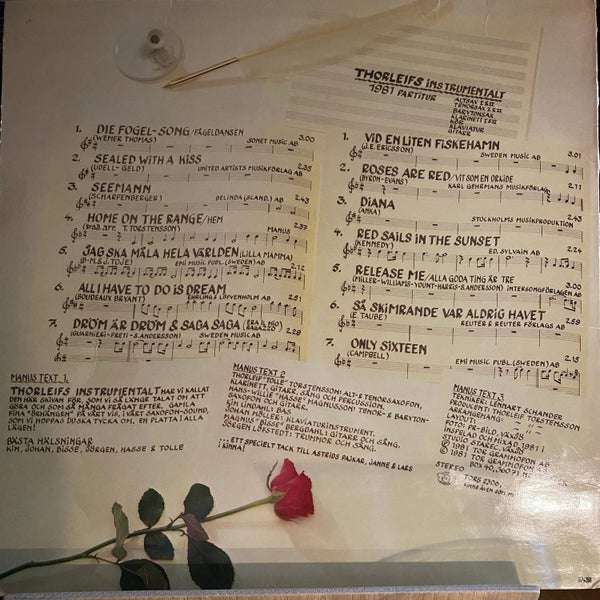 THORLEIFS INSTRUMENTALT
1981 PARTITUR
ALTSAX I & II
TENORSAX I & II
BARYTONSAX
KLARINETT I & II
KÖR
KLAVIATUR
GITARR
1. DIE FOGEL-SONG/FÅGELDANSEN
(WERNER THOMAS) SONET MUSIC AB 3.00
2. SEALED WITH A KISS
(UDELL-GELD) UNITED ARTISTS MUSIKFÖRLAG AB 2.35
3. SEEMANN
(SCHARFENBERGER) DELINDA (SCAND.) AB 2.43
4. HOME ON THE RANGE/HEM
T. TORSTENSSON) MANUS 2.37
5. JAG SKA MÅLA HELA VÄRLDEN (LILLA MAMMA)
EMI MUSIC PUBL. (SWEDEN) AB
6. ALL I HAVE TO DO IS DREAM
(BOUDEAUX BRYANT) EHRLING & LÖFVENHOLM AB 2.51
7. DRÖM ÄR DRÖM & SAGA SAGA
(GUARNIERI-PRETI-S. ANDERSSON) SWEDEN MUSIC AB 2.59
1. VID EN LITEN FISKEHAMN
(J.E. ERICSSON) SWEDEN MUSIC AB 3.01
2. ROSES ARE RED/VIT SOM EN ORKIDÉ
(BYRON-EVANS) KARL GEHRMANS MUSIKFÖRLAG 2.71
3. DIANA
(ANKA) STOCKHOLMS MUSIKPRODUKTION 2.43
4. RED SAILS IN THE SUNSET
(KENNEDY) ED. SYLVAIN AB 2.54
5. RELEASE ME/ALLA GODA TING ÄR TRE
(MILLER-WILLIAMS-YOUNT-HARRIS-S. ANDERSSON) INTERSONGFÖRLAGEN AB 3.00
6. SÅ SKIMRANDE VAR ALDRIG HAVET
(E. TAUBE) REUTER & REUTER FÖRLAGS AB 2.28
7. ONLY SIXTEEN
(CAMPBELL) EMI MUSIC PUBL (SWEDEN) AB 2.15
MANUS TEXT 1:
THORLEIFS INSTRUMENTALT HAR VI KALLAT
DEN HÄR SKIVAN FÖR, SOM VI SÅ LÄNGE TALAT OM ATT
GÖRA OCH SOM SÅ MÅNGA FRÅGAT EFTER. GAMLA,
FINA "ÖRHÄNGEN" PÅ VÅRT VIS, I VÅRT SAXOFON-SOUND,
SOM VI HOPPAS DU SKA TYCKA OM. EN PLATTA I ALLA
LÄGEN!
BÄSTA HÄLSNINGAR
KIM, JOHAN, BISSE, JÖRGEN, HASSE & TOLLE
MANUS TEXT 2
THORLEIF "TOLLE" TORSTENSSON: ALT- & TENORSAXOFON,
KLARINETT, GITARR, SÅNG OCH PERCUSSION.
HANS-WILLIE "HASSE" MAGNUSSON: TENOR- & BARYTON-
SAXOFON, GITARR.
KIM LINDAHL: BAS
JOHAN KALÉR: KLAVIATURINSTRUMENT.
"BISSE" BERGDAHL: GITARR OCH SÅNG.
JÖRGEN LÖFSTEDT: TRUMMOR OCH SÅNG.
... ETT SPECIELLT TACK TILL ASTRIDS PAJKAR, JANNE & LARS
KINNA!
MANUS TEXT 3
TEKNIKER: LENNART SCHANDER
PRODUCENT: THORLEIF TORSTENSSON
ARRANGEMANG:
LAYOUT:
FOTO: PR-BILD, VÄXJÖ
INSPELAD OCH MIXAD 1981 I
STUDIO STAREC, VÄXJÖ
© 1981 TOR GRAMMOFON AB
℗ 1981 TOR GRAMMOFON
BOX 40, 360 71
STEREO TORS 2306,